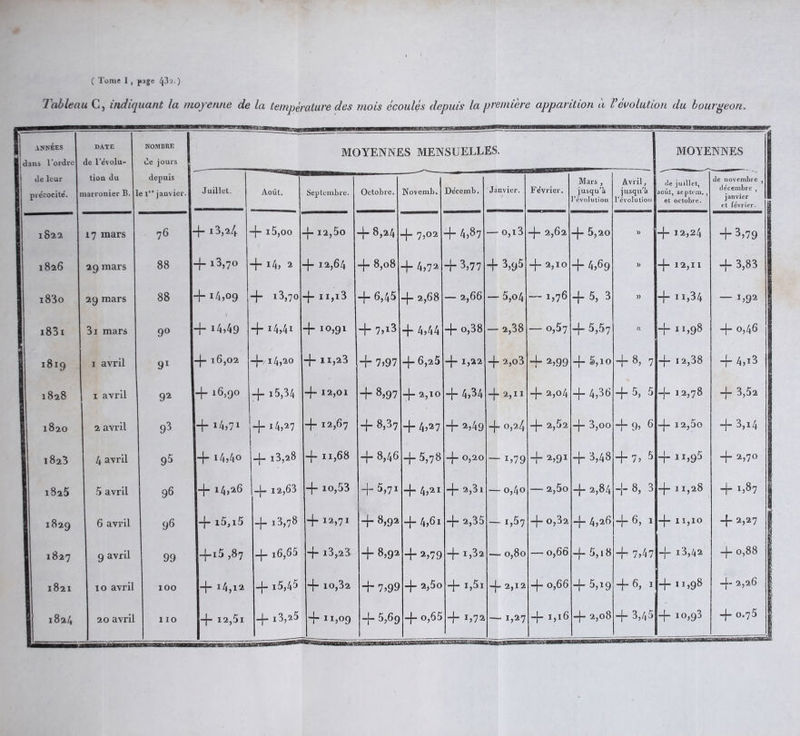 ( Tome 1, page 432.)
Tableau C, indiquant la moyenne de la température des mois écoulés depuis la première apparition à l'évolution du bourgeon.
ANNÉES dans l'ordre de leur précocité. | DATE de l'évolution du marronier B. | NOMBRE de jours depuis le 1er janvier. | MOYENNES MENSUELLES. | MOYENNES
Juillet. | Août. | Septembre. | Octobre. | Novemb. | Décemb. | Janvier. | Février. | Mars, jusqu'à l'évolution | Avril, jusqu'à l'évolution | de juillet, août, septem., et octobre. | de novembre, décembre, janvier et février.
1822 | 17 mars | 76 | + 13,24 | + 15,00 | + 12,50 | + 8,24 | + 7,02 | + 4,87 | — 0,13 | + 2,62 | + 5,20 | » | + 12,24 | + 3,79
1826 | 29 mars | 88 | + 13,70 | + 14, 2 | + 12,64 | + 8,08 | + 4,72 | + 3,77 | + 3,95 | + 2,10 | + 4,69 | » | + 12,11 | + 3,83
1830 | 29 mars | 88 | + 14,09 | + 13,70 | + 11,13 | + 6,45 | + 2,68 | — 2,66 | — 5,04 | — 1,76 | + 5, 3 | » | + 11,34 | — 1,92
1831 | 31 mars | 90 | + 14,49 | + 14,41 | + 10,91 | + 7,13 | + 4,44 | + 0,38 | — 2,38 | — 0,57 | + 5,57 | « | + 11,98 | + 0,46
1819 | 1 avril | 91 | + 16,02 | + 14,20 | + 11,23 | + 7,97 | + 6,25 | + 1,22 | + 2,03 | + 2,99 | + 5,10 | + 8, 7 | + 12,38 | + 4,13
1828 | 1 avril | 92 | + 16,90 | + 15,34 | + 12,01 | + 8,97 | + 2,10 | + 4,34 | + 2,11 | + 2,04 | + 4,36 | + 5, 5 | + 12,78 | + 3,52
1820 | 2 avril | 93 | + 14,71 | + 14,27 | + 12,67 | + 8,37 | + 4,27 | + 2,49 | + 0,24 | + 2,52 | + 3,00 | + 9, 6 | + 12,50 | + 3,14
1823 | 4 avril | 95 | + 14,40 | + 13,28 | + 11,68 | + 8,46 | + 5,78 | + 0,20 | — 1,79 | + 2,91 | + 3,48 | + 7, 5 | + 11,95 | + 2,70
1825 | 5 avril | 96 | + 14,26 | + 12,63 | + 10,53 | + 5,71 | + 4,21 | + 2,31 | — 0,40 | — 2,50 | + 2,84 | + 8, 3 | + 11,28 | + 1,87
1829 | 6 avril | 96 | + 15,15 | + 13,78 | + 12,71 | + 8,92 | + 4,61 | + 2,35 | — 1,57 | + 0,32 | + 4,26 | + 6, 1 | + 11,10 | + 2,27
1827 | 9 avril | 99 | +15 ,87 | + 16,65 | + 13,23 | + 8,92 | + 2,79 | + 1,32 | — 0,80 | — 0,66 | + 5,18 | + 7,47 | + 13,42 | + 0,88
1821 | 10 avril | 100 | + 14,12 | + 15,45 | + 10,32 | + 7,99 | + 2,50 | + 1,51 | + 2,12 | + 0,66 | + 5,19 | + 6, 1 | + 11,98 | + 2,26
1824 | 20 avril | 110 | + 12,51 | + 13,25 | + 11,09 | + 5,69 | + 0,65 | + 1,72 | — 1,27 | + 1,16 | + 2,08 | + 3,45 | + 10,93 | + 0.75